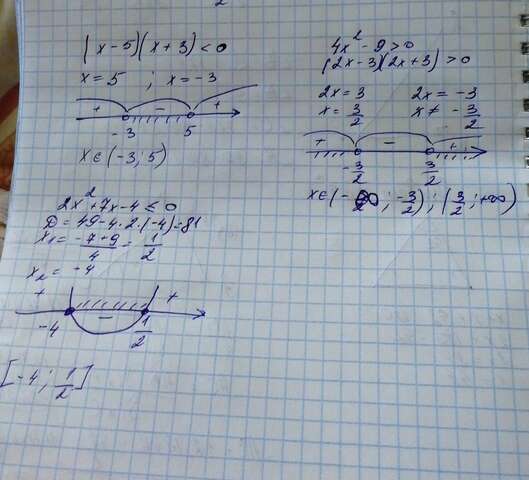 (x-5)(x+3)<0
x=5 ; x=-3
+ - +
-3 5
x∈(-3;5)
4x²-9>0
(2x-3)(2x+3)>0
2x=3 2x=-3
x=3/2 x≠-3/2
+ - +
-3/2 3/2
x∈(-∞;-3/2);(3/2;+∞)
2x²+7x-4≤0
D=49-4·2·(-4)=81
x₁=(-7+9)/4=1/2
x₂=-4
+ - +
-4 1/2
[-4;1/2]